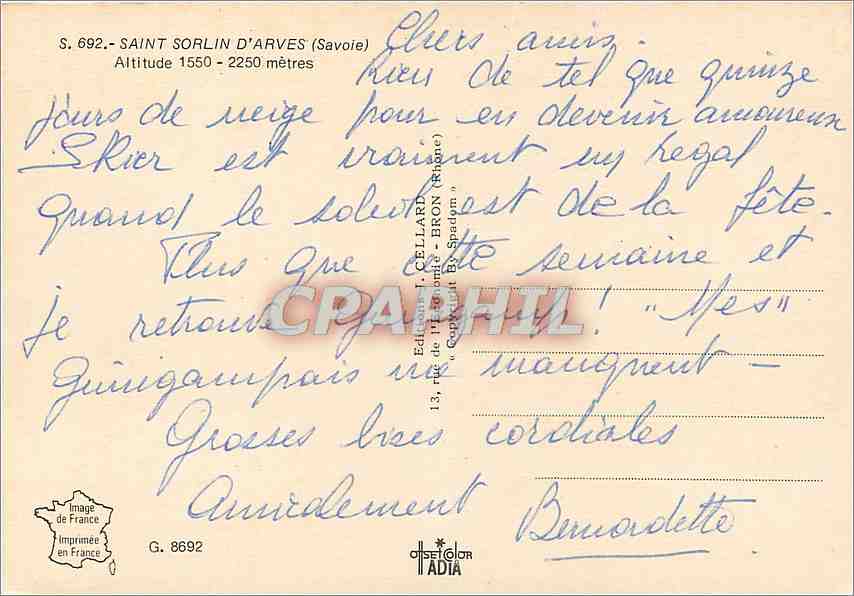 S. 692.- SAINT SORLIN D'ARVES (Savoie)
Altitude 1550 - 2250 mètres
Chers amis.
Rien de tel que quinze
jours de neige pour en devenir amoureux
Skier est vraiment un régal
quand le soleil est de la fête.
Plus que cette semaine et
je retrouve Guingamp! "Mes"
Guingampais me manquent -
Grosses bises cordiales
Amicalement
Bernadette
Editions J. CELLARD
13, rue de l'Economie - BRON (Rhône)
" Copyright By Spadem "
CPAPHIL
Image
de France
Imprimée
en France
G. 8692
OFFSET COLOR
ADIA